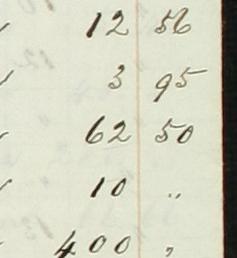 12 56
3 95
62 50
10 "
400 "